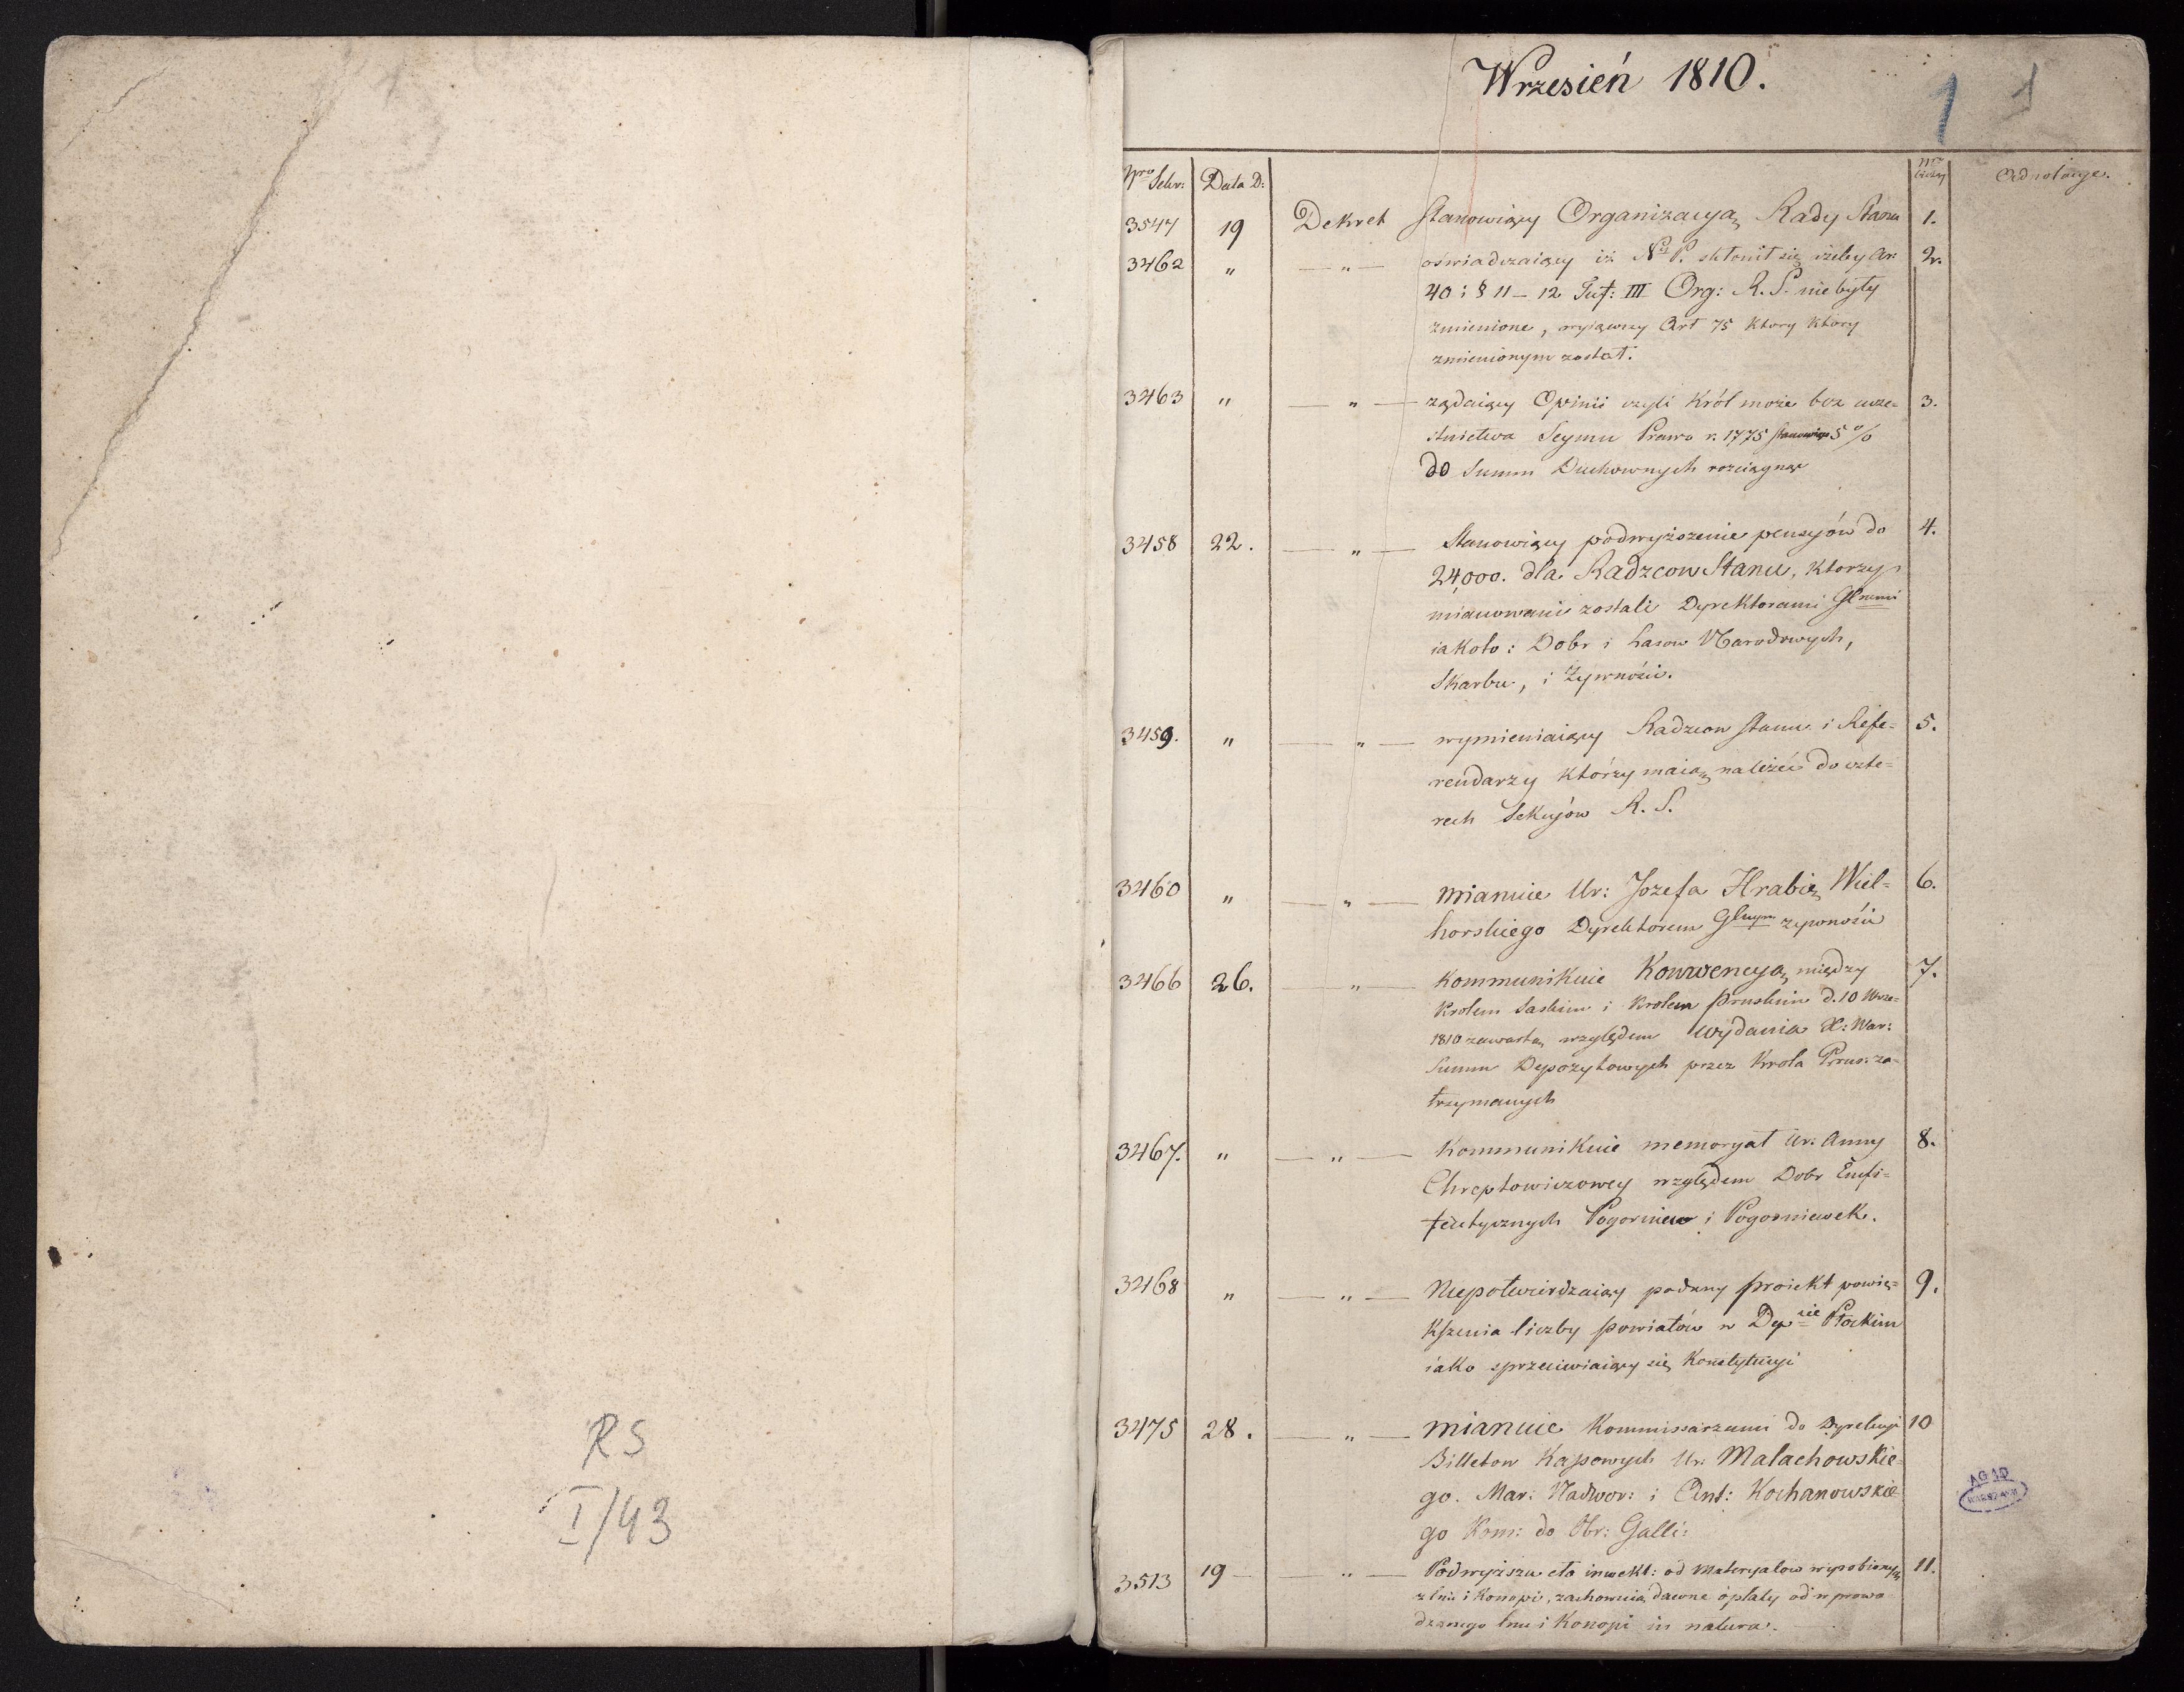 RS
I/43
Wrzesień 1810.
1 1
Nro Sekr: Data D: Nro Adnotacye.
3547 19 Dekret stanowiący Organizacyą Rady Stanu 1.
3462 " — " — oświadczaiący iż N. P. skłonił się iżeby Ar: 2.
40 i § 11 – 12 Tyt: III Org: R. S. nie były
zmienione, wyiąwszy Art 75 ktory ktory
zmienionym został.
3463 " — " — ządaiący Opinii czyli Król może bez ucze= 3.
stnictwa Seymu Prawo r. 1775 stanowiące 5 %
do Summ Duchownych rozciągnąć
3458 22. — " — Stanowiący podwyższenie pensyów do 4.
24,000. dla Radzcow Stanu, ktorzy
mianowani zostali Dyrektorami Glnemi
iakoto: Dobr i Lasow Narodowych,
Skarbu, i Żywności.
3459. " — " — wymieniaiący Radzcow Stanu i Refe= 5.
rendarzy którzy maią należeć do czte=
rech Sekcyów R. S.
3460 " — " — mianuie Ur: Jozefa Hrabię Wiel= 6.
horskiego Dyrektorem Glnym żywności
3466 26. — " — Kommunikuie Konwencyą między 7.
Krolem Saskim i Krolem Pruskim d. 10 Wrze=
1810 zawartą względem wydania X: War:
Summ Depozytowych przez Krola Prus: za=
trzymanych
3467. " — " — Kommunikuie memoryał Ur: Anny 8.
Chreptowiczowey względem Dobr Emfi=
teutycznych Pogorniew i Pogorniewek.
3468 " — " — Niepotwierdzaiący podany proiekt powię= 9.
kszenia liczby powiatów w Depcie Płockim
iako sprzeciwiaiący się Konstytucyi
3475 28. — " — mianuie Kommissarzami do Dyrekcyi 10
Billetow Kassowych Ur: Malachowskie=
go. Mar: Nadwor: i Ant: Kochanowskie=
go Kom: do Obr: Galli:
3513 19 — — " — Podwyższa cło inwekt: od Materyalow wyrobionych 11.
z lnu i Konopi, zachowuią dawne opłaty od wprowa
dzanego lnu i Konopi in natura.
AGAD
WARSZAWA